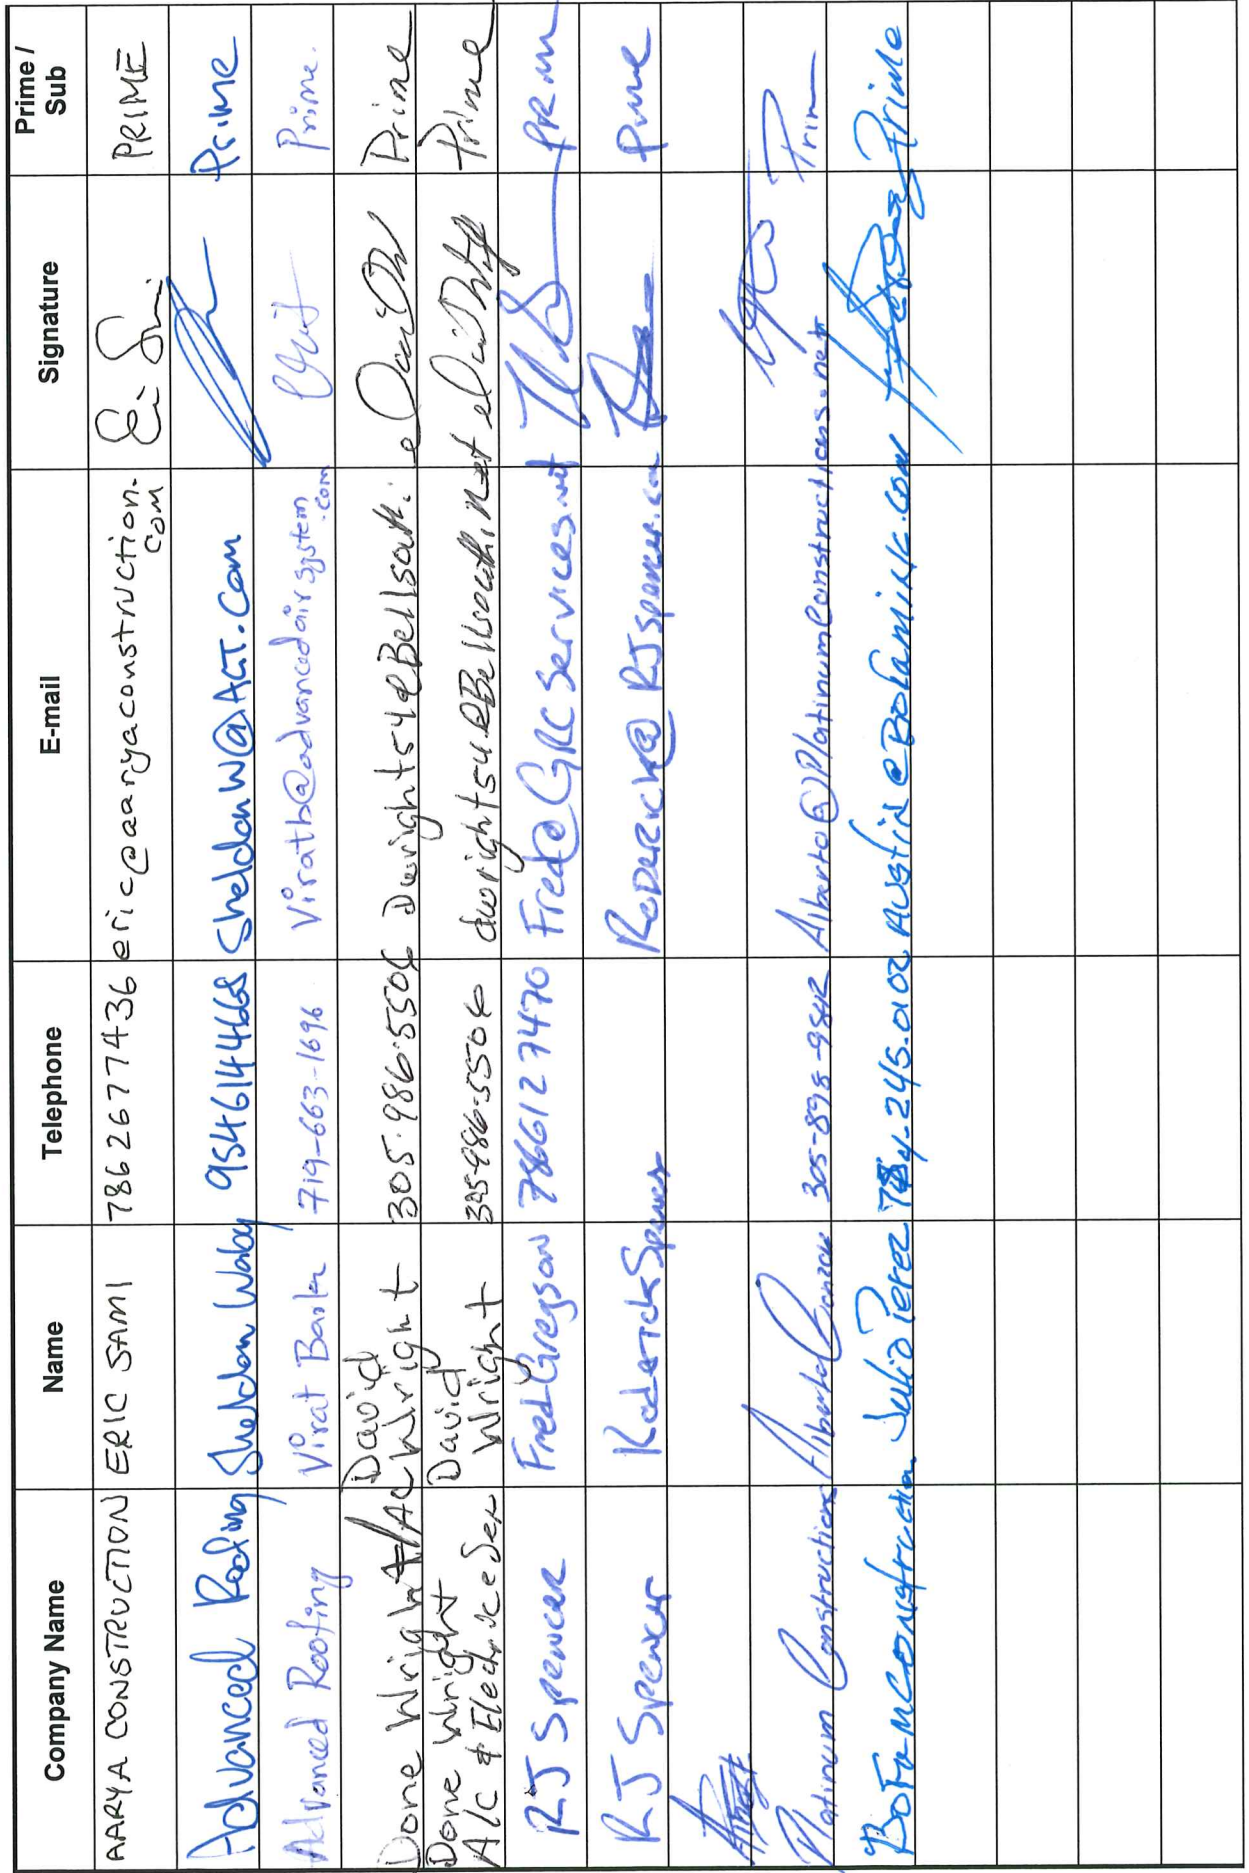 Company Name Name Telephone E-mail Signature Prime / Sub
AARYA CONSTRUCTION ERIC SAMI 7862677436 eric@aaryaconstruction.com PRIME
Advanced Roofing Sheldon Waby 9546144668 SheldonW@AGT.Com Prime
Advanced Roofing Virat 719-663-1696 Viratb@advancedairsystem.com Prime.
Done Wright AC David Wright 305.986.5506 Dwright54@Bellsouth. Prime
Done Wright A/c & Elec David Wright 305-986-5506 dwright54@Bellsouth.net Prime
RJ Spencer Fred Gregson 7866127470 Fred@GRCServices.net PRM
RJ Spencer Roderick Spencer RODERICK@RJspencer.com Prime
Platinum Constructions Alberto 305-898-9842 Alberto@Platinumconstructions.net Prim
Construction Julio Perez 245.0102 Prime